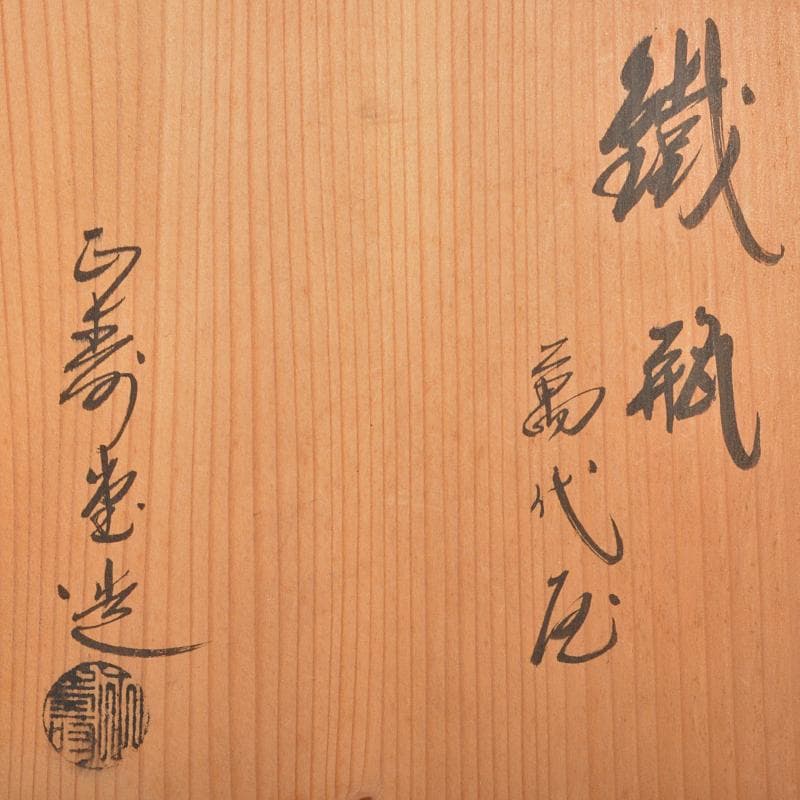 鐵瓶
萬代屋
正壽堂造